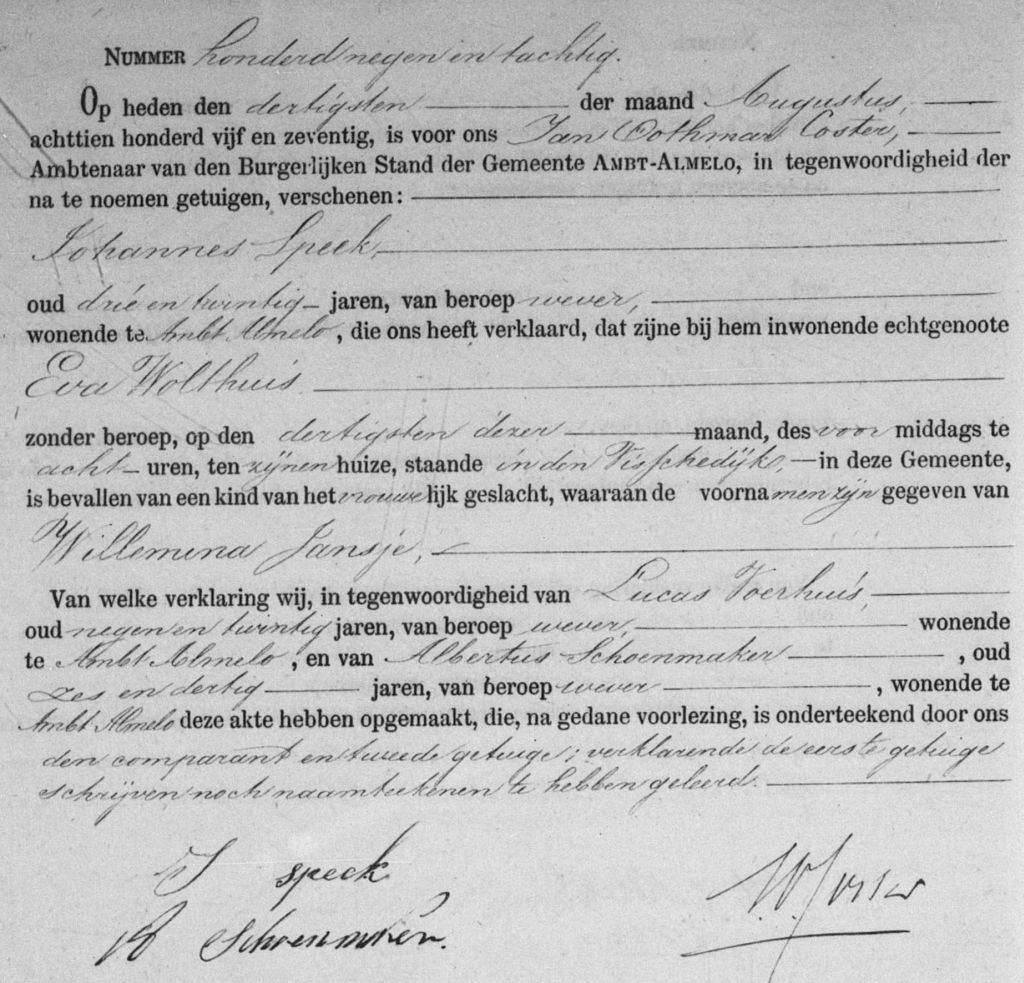 NUMMER honderd negen en tachtig.
Op heden den dertigsten der maand Augustus,
achttien honderd vijf en zeventig, is voor ons Jan Oothmar Coster,
Ambtenaar van den Burgerlijken Stand der Gemeente AMBT-ALMELO, in tegenwoordigheid der
na te noemen getuigen, verschenen:
Johannes Speek,
oud drie en twintig jaren, van beroep wever,
wonende te Ambt Almelo, die ons heeft verklaard, dat zijne bij hem inwonende echtgenoote
Eva Wolthuis
zonder beroep, op den dertigsten dezer maand, des voor middags te
acht uren, ten zijnen huize, staande in den Visschedijk, in deze Gemeente,
is bevallen van een kind van het vrouwelijk geslacht, waaraan de voornamen zijn gegeven van
Willemina Jansje,
Van welke verklaring wij, in tegenwoordigheid van Lucas Voerhuis,
oud negen en twintig jaren, van beroep wever, wonende
te Ambt Almelo, en van Albertus Schoenmaker, oud
zes en dertig jaren, van beroep wever, wonende te
Ambt Almelo deze akte hebben opgemaakt, die, na gedane voorlezing, is onderteekend door ons
den comparant en tweede getuige; verklarende de eerste getuige
schrijven noch naamteekenen te hebben geleerd.
J speek
A Schoenmaker.